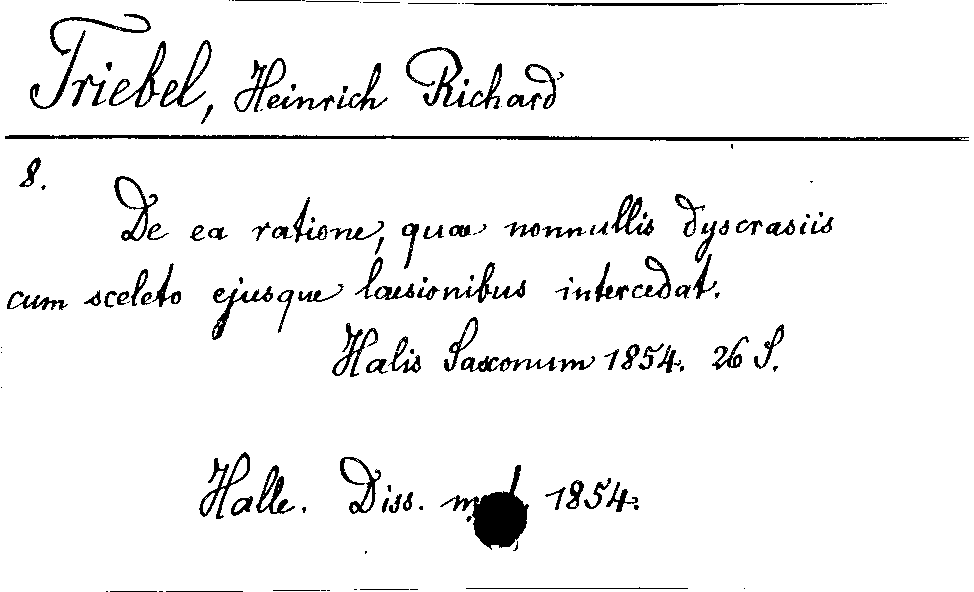 Triebel, Heinrich Richard
8.
De ea ratione, quae nonnullis dyscrasiis
cum sceleto ejusque laesionibus intercedat.
Halis Saxonum 1854. 26 S.
Halle. Diss. 1854.